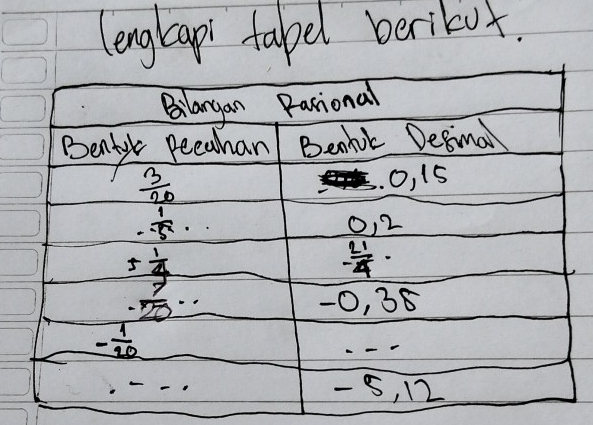 lengkapi tabel berikut.
Bilangan Rasional
Bentuk Pecahan Bentuk Desimal
3/20 0,15
1/5 .. 0,2
5 1/4 21/4 .
7/20 .. -0,35
-1/20 ---
.--.. -5,12